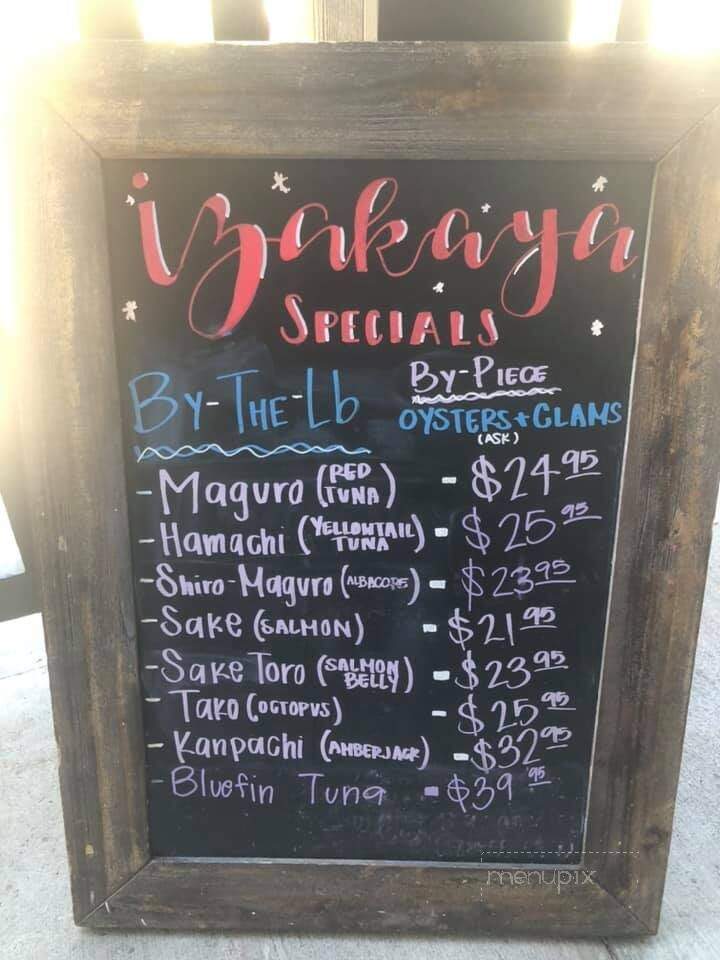 izakaya
SPECIALS
BY-THE-Lb
BY-PIECE
OYSTERS + CLAMS
(ASK)
- Maguro (RED TUNA) - $24.95
- Hamachi (YELLOWTAIL TUNA) - $25.95
- Shiro-Maguro (ALBACORE) - $23.95
- Sake (SALMON) - $21.95
- Sake Toro (SALMON BELLY) - $23.95
- Tako (OCTOPUS) - $25.95
- Kanpachi (AMBERJACK) - $32.95
- Bluefin Tuna - $39.95
menupix